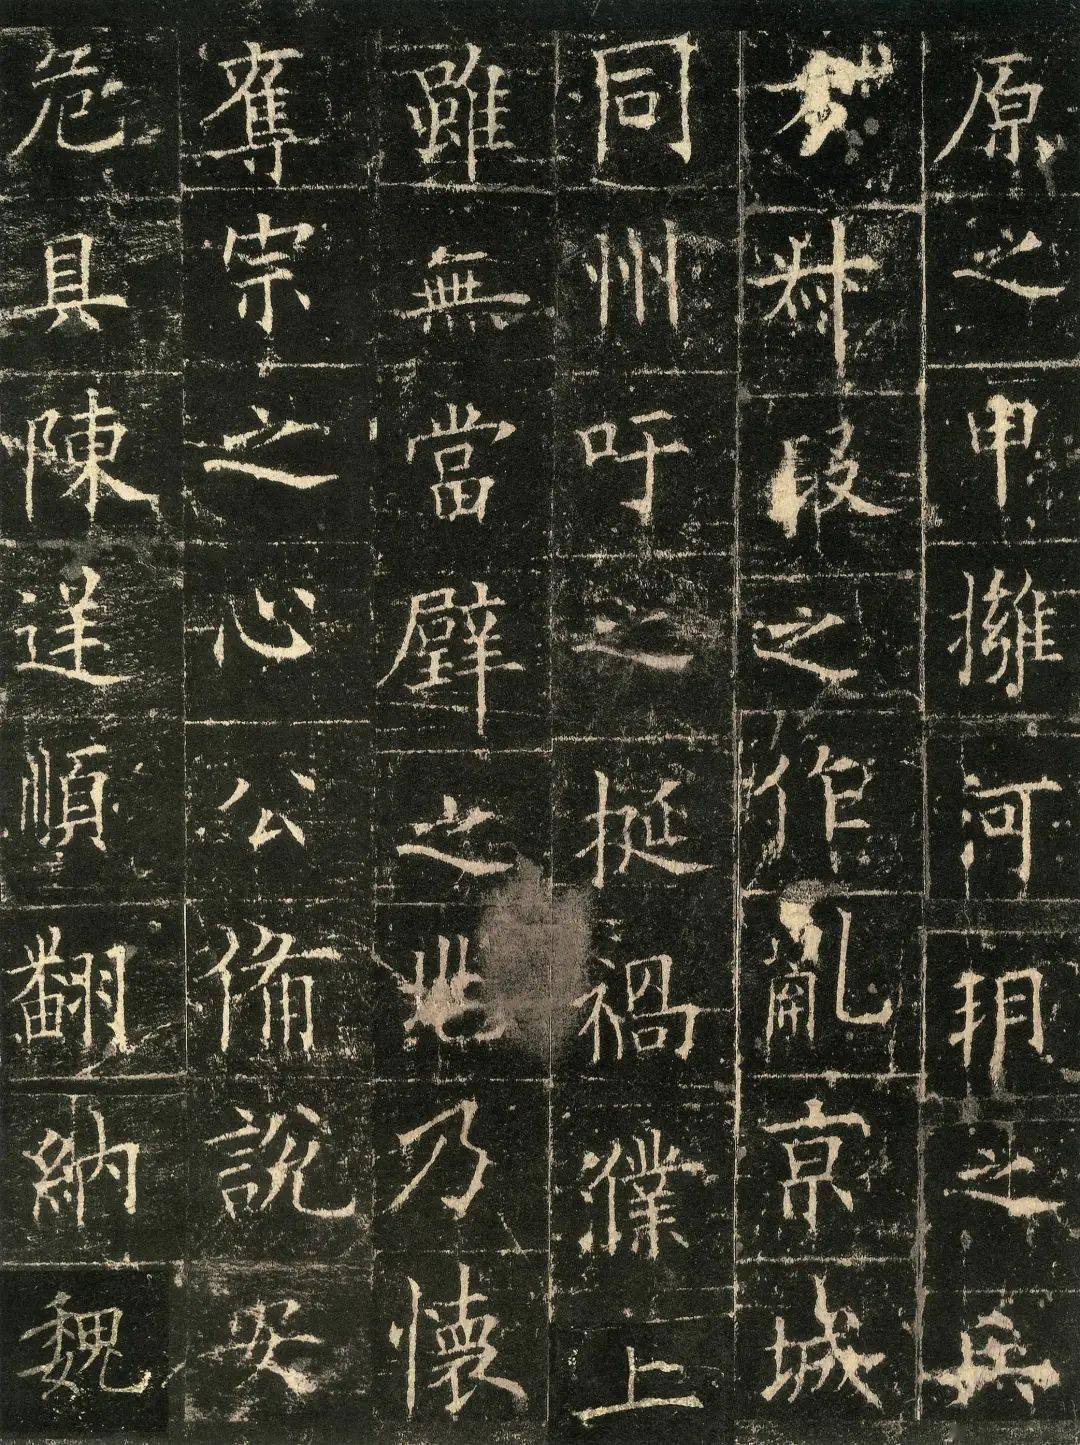 原之甲擁河朔之兵
方叔段之作亂京城
同州吁之挺禍濮上
雖無當璧之地乃懷
奪宗之心公備說安
危具陳逆順翻納魏